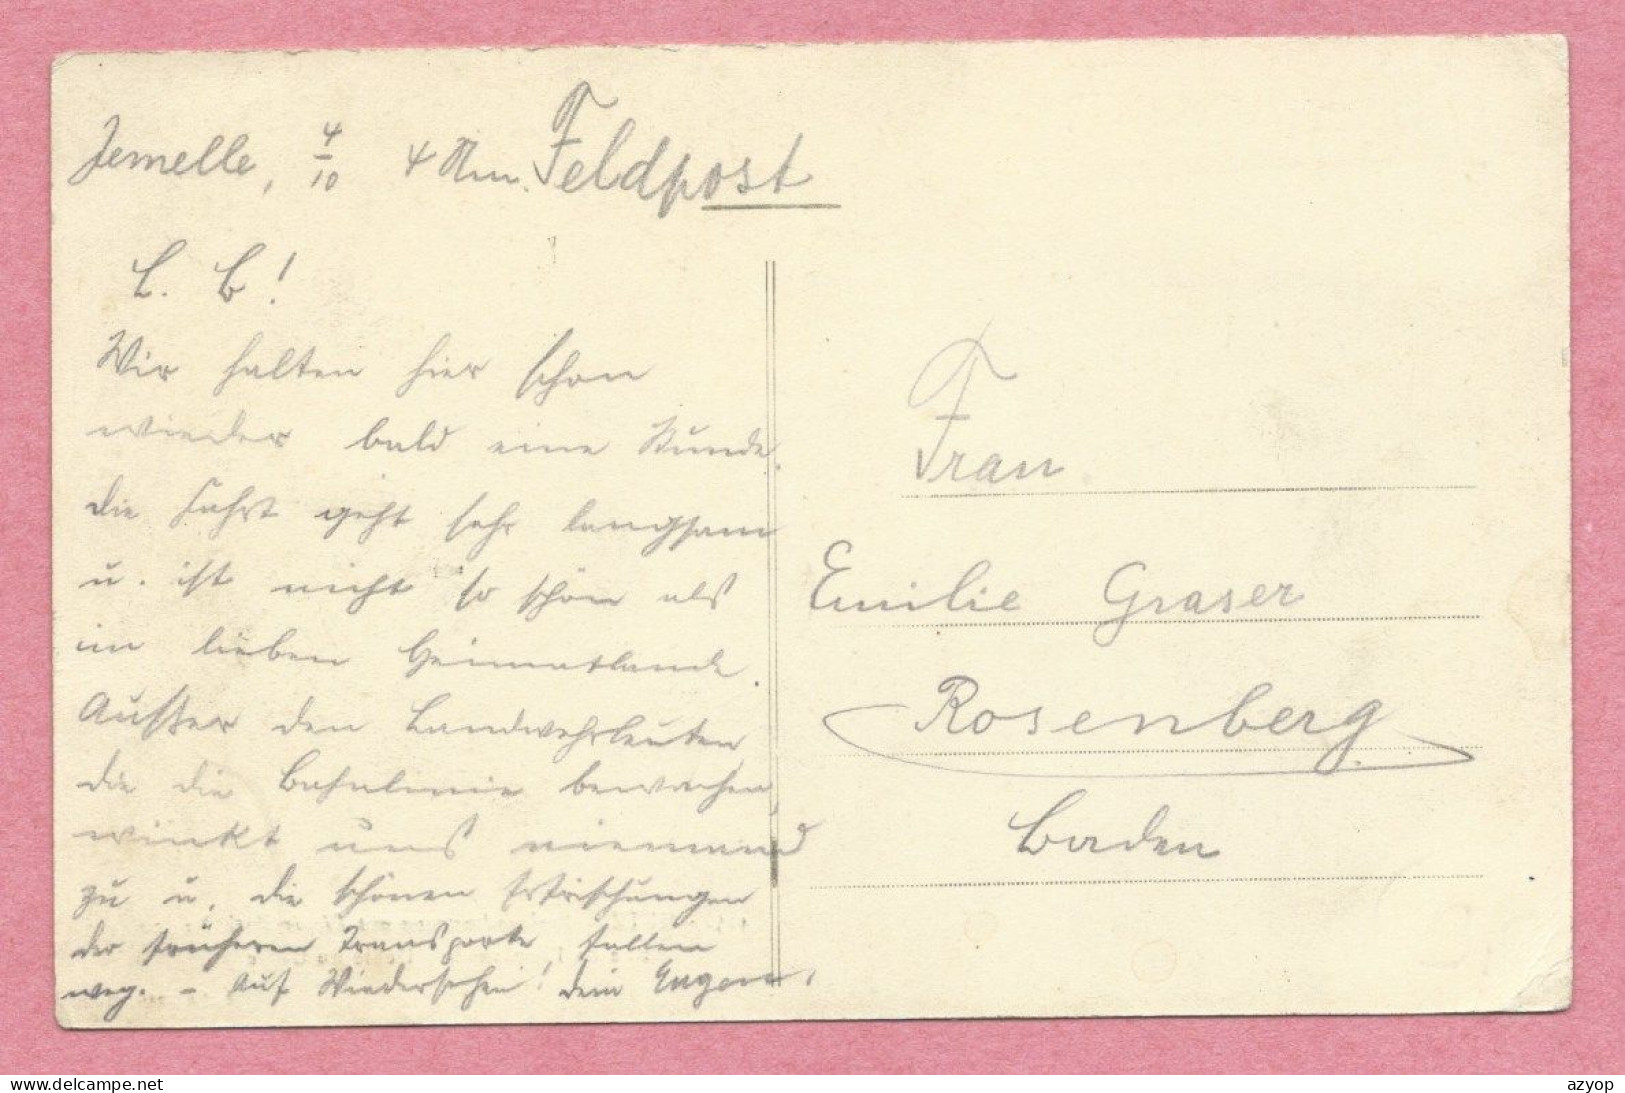 Jemelle, 4/10 4 Nm. Feldpost
L. E!
Wir halten hier schon
wieder bald eine Stunde.
die Fahrt geht sehr langsam
u. ist nicht so schön als
im lieben Heimatlande.
Außer den Landwehrleuten
die die Bahnlinie bewachen,
winkt uns niemand
zu u. die schönen Erfrischungen
der früheren Transporte fallen
weg. - Auf Wiedersehen! dein Eugen.
Frau
Emilie Graser
Rosenberg
Baden
delcampe.net
azyop